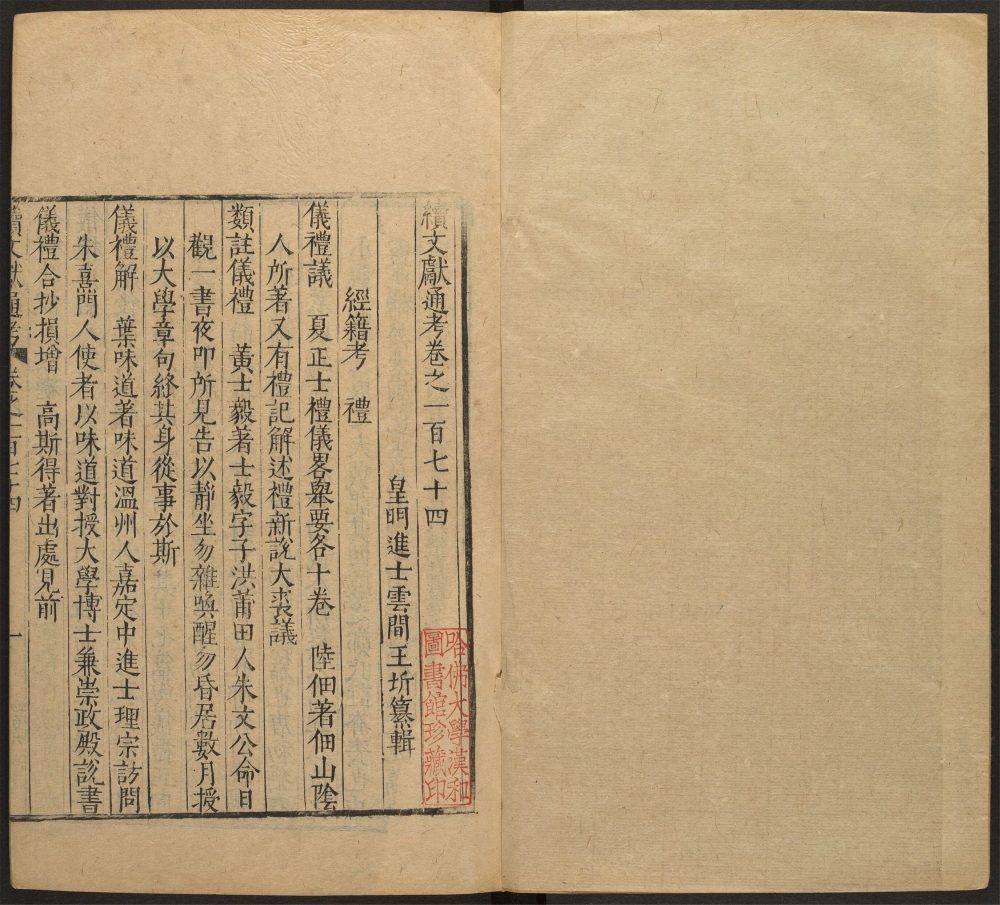 續文獻通考卷之一百七十四
皇明進士雲間王圻纂輯
經籍考 禮
儀禮議 夏正士禮儀畧舉要各十卷 陸佃著佃山陰
人所著又有禮記解述禮新說大裘議
類註儀禮 黃士毅著士毅字子洪莆田人朱文公命日
觀一書夜叩所見告以靜坐勿雜喚醒勿昏居數月授
以大學章句終其身從事於斯
儀禮解 葉味道著味道溫州人嘉定中進士理宗訪問
朱熹門人使者以味道對授大學博士兼崇政殿說書
儀禮合抄損增 高斯得著出處見前
續文獻通考 卷之一百七十四 一
哈佛大學漢和
圖書館珍藏印